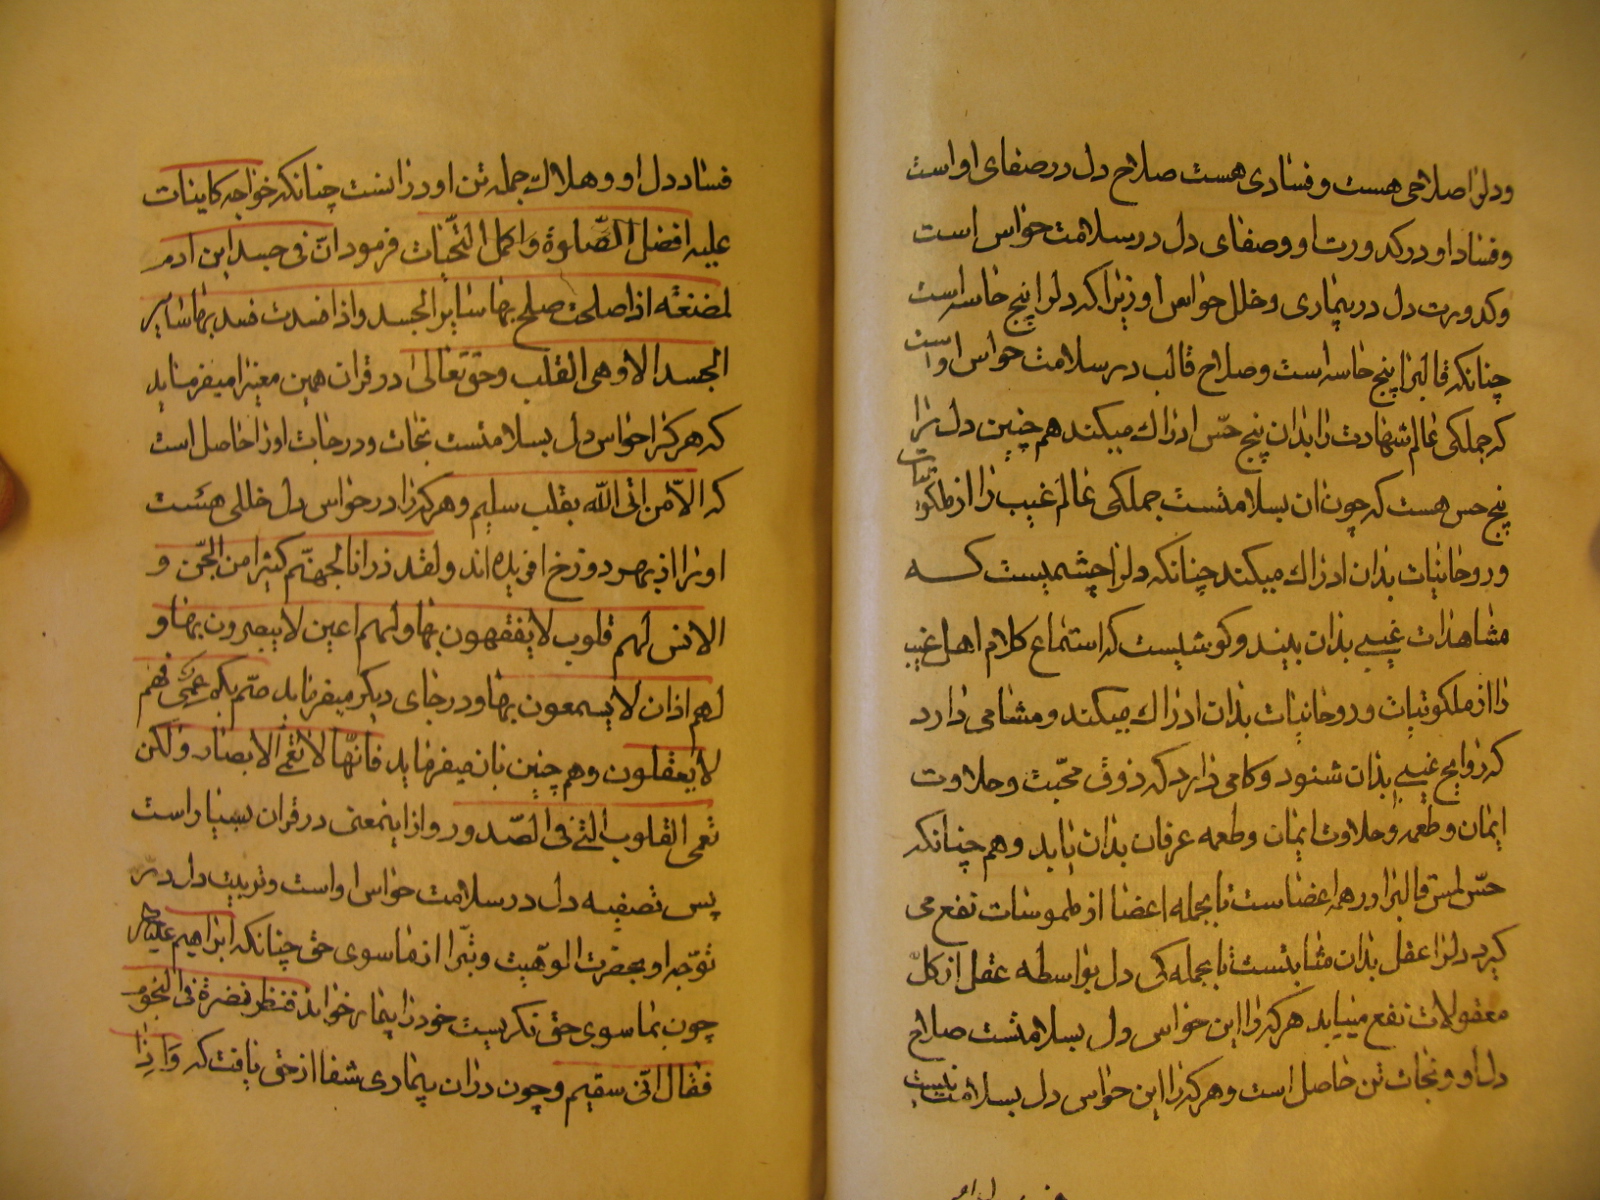 ودلرا صلاحی هست و فسادی هست صلاح دل در صفای او است
وفساد او در کدورت او وصفای دل در سلامت حواس است
وکدورت دل در بیماری وخلل حواس او زیرا که دلرا پنج حاسه است
چنانکه قالبرا پنج حاسه است وصلاح قالب در سلامت حواس او است
که جملکی عالم شهادت را بدان پنج حس ادراک میکند هم چنین دل را
پنج حس هست که چون ان بسلامتست جملکی عالم غیب را از ملکوتیات
وروحانیات بذان ادراک میکند چنانکه دلرا چشمیست کـه
مشاهدات غیبی بذان بیند وکوشیست که استماع کلام اهل غیب
را از ملکوتیات وروحانیات بذان ادراک میکند ومشامی دارد
که روایح غیبی بذان شنود وکامی دارد که ذوق محبت وحلاوت
ایمان وطعمه وحلاوت ایمان وطعمه عرفان بذان یابد وهم چنانکه
حس لمس قالبرا در همه اعضاست تا بجمله اعضا از ملموسات نفع می
کیرد دلرا عقل بذان مثابتست تا بجملکی دل بواسطه عقل از کل
معقولات نفع مییابد هرکه را این حواس دل بسلامتست صلاح
دل او ونجات تن حاصل است وهرکه را این حواس دل بسلامت نیست
فساد دل او وهلاک جمله تن او درانست چنانکه خواجه کاینات
علیه افضل الصلوة واکمل التحیات فرمود ان فی جسد ابن ادم
لمضغه اذا صلحت صلح بها سایر الجسد واذا فسدت فسد بها سایر
الجسد الا وهی القلب وحق تعالی در قران همین معنیرا میفرماید
که هرکرا حواس دل بسلامتست نجات ودرجات اورا حاصل است
که الا من اتی الله بقلب سلیم وهرکه را در حواس دل خللی هست
اورا از بهر دوزخ افریده اند ولقد ذرانا لجهنم کثیرا من الجن و
الانس لهم قلوب لا یفقهون بها ولهم اعین لا یبصرون بها و
لهم اذان لا یسمعون بها ودر جای دیکر میفرماید صم بکم عمی فهم
لا یعقلون وهم چنین بان میفرماید فانها لا تعمی الابصار ولکن
تعمی القلوب التی فی الصدور واز اینمعنی در قران بسیار است
پس تصفیه دل در سلامت حواس او است وتربیت دل در
توجه او بحضرت الوهیت وتبرا از ماسوی حق چنانکه ابراهیم علیه
چون بماسوی حق نکریست خود را بیمار خواند فنظر نضرة فی النجوم
فقال انی سقیم وچون دران بیماری شفا از حق یافت که وَاِذا